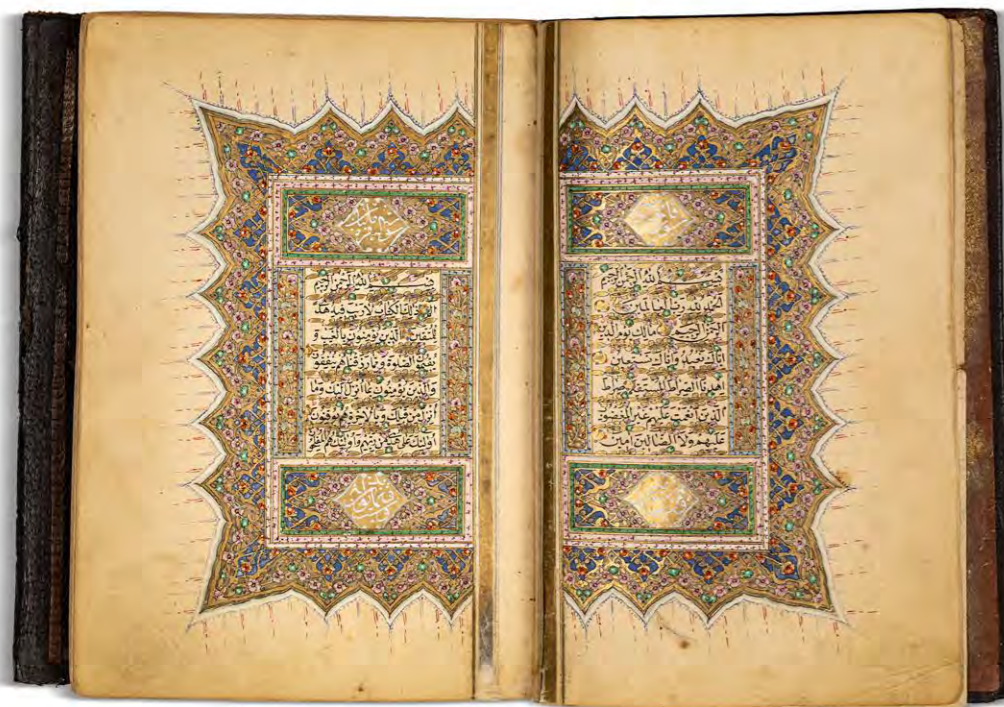 بسم الله الرحمن الرحيم
الحمد لله رب العالمين
الرحمن الرحيم مالك يوم الدين
اياك نعبد واياك نستعين
اهدنا الصراط المستقيم صراط
الذين انعمت عليهم غير المغضوب
عليهم ولا الضالين امين
بسم الله الرحمن الرحيم
الم ذلك الكتاب لا ريب فيه هدى
للمتقين الذين يؤمنون بالغيب و
يقيمون الصلاة ومما رزقناهم ينفقون
والذين يؤمنون بما انزل اليك وما
انزل من قبلك وبالاخرة هم يوقنون
اولئك على هدى من ربهم واولئك هم المفلحون